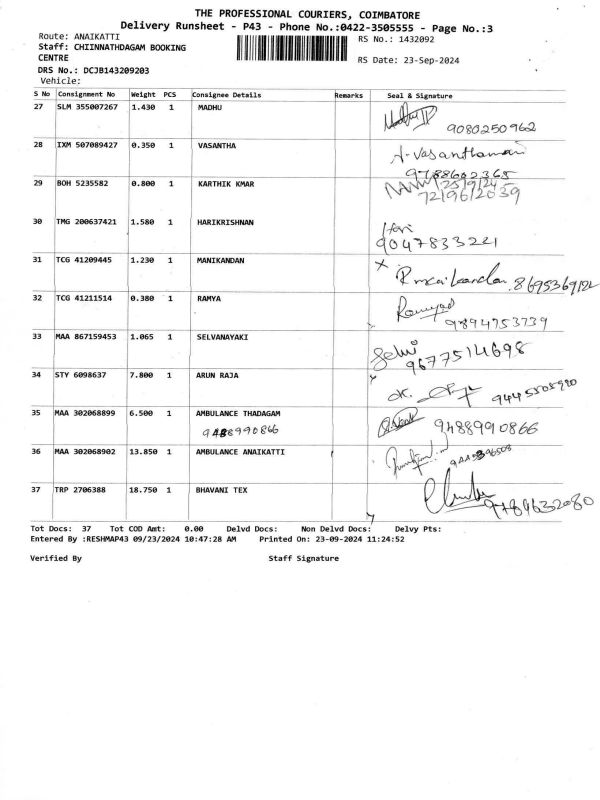 THE PROFESSIONAL COURIERS, COIMBATORE
Delivery Runsheet - P43 - Phone No.:0422-3505555 - Page No.:3
Route: ANAIKATTI RS No.: 1432092
Staff: CHIINNATHDAGAM BOOKING
CENTRE RS Date: 23-Sep-2024
DRS No.: DCJB143209203
Vehicle:
S No Consignment No Weight PCS Consignee Details Remarks Seal & Signature
27 SLM 355007267 1.430 1 MADHU
9080250962
28 IXM 507089427 0.350 1 VASANTHA
9788602365
29 BOH 5235582 0.800 1 KARTHIK KMAR 25/9/24
7219612039
30 TMG 200637421 1.580 1 HARIKRISHNAN Hari
9047833221
31 TCG 41209445 1.230 1 MANIKANDAN
32 TCG 41211514 0.380 1 RAMYA
9894753739
33 MAA 867159453 1.065 1 SELVANAYAKI Selvi
9677514698
34 STY 6098637 7.800 1 ARUN RAJA
OK.
35 MAA 302068899 6.500 1 AMBULANCE THADAGAM
9488990866 9488990866
36 MAA 302068902 13.850 1 AMBULANCE ANAIKATTI
37 TRP 2706388 18.750 1 BHAVANI TEX
9789632080
Tot Docs: 37 Tot COD Amt: 0.00 Delvd Docs: Non Delvd Docs: Delvy Pts:
Entered By :RESHMAP43 09/23/2024 10:47:28 AM Printed On: 23-09-2024 11:24:52
Verified By Staff Signature